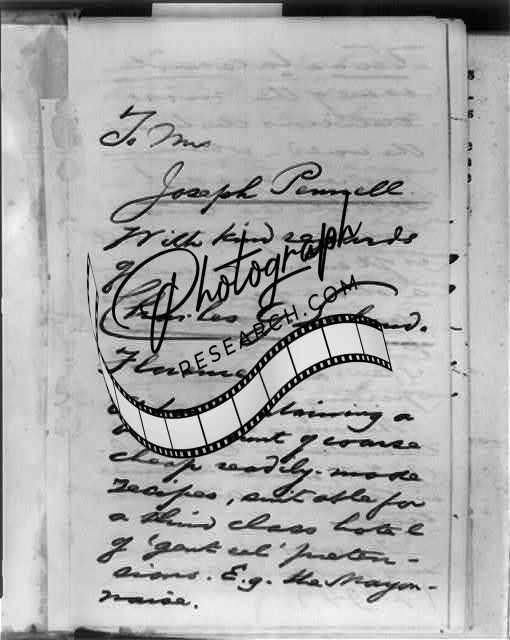 To Mrs
Joseph Pennell.
With kind regards
of
Charles G. Leland.
Florence
containing a
of coarse
cheap readily-made
recipes, suitable for
a third class hotel
of 'genteel' preten-
sions. E.g. the Mayon-
naise.
Photograph
RESEARCH.COM